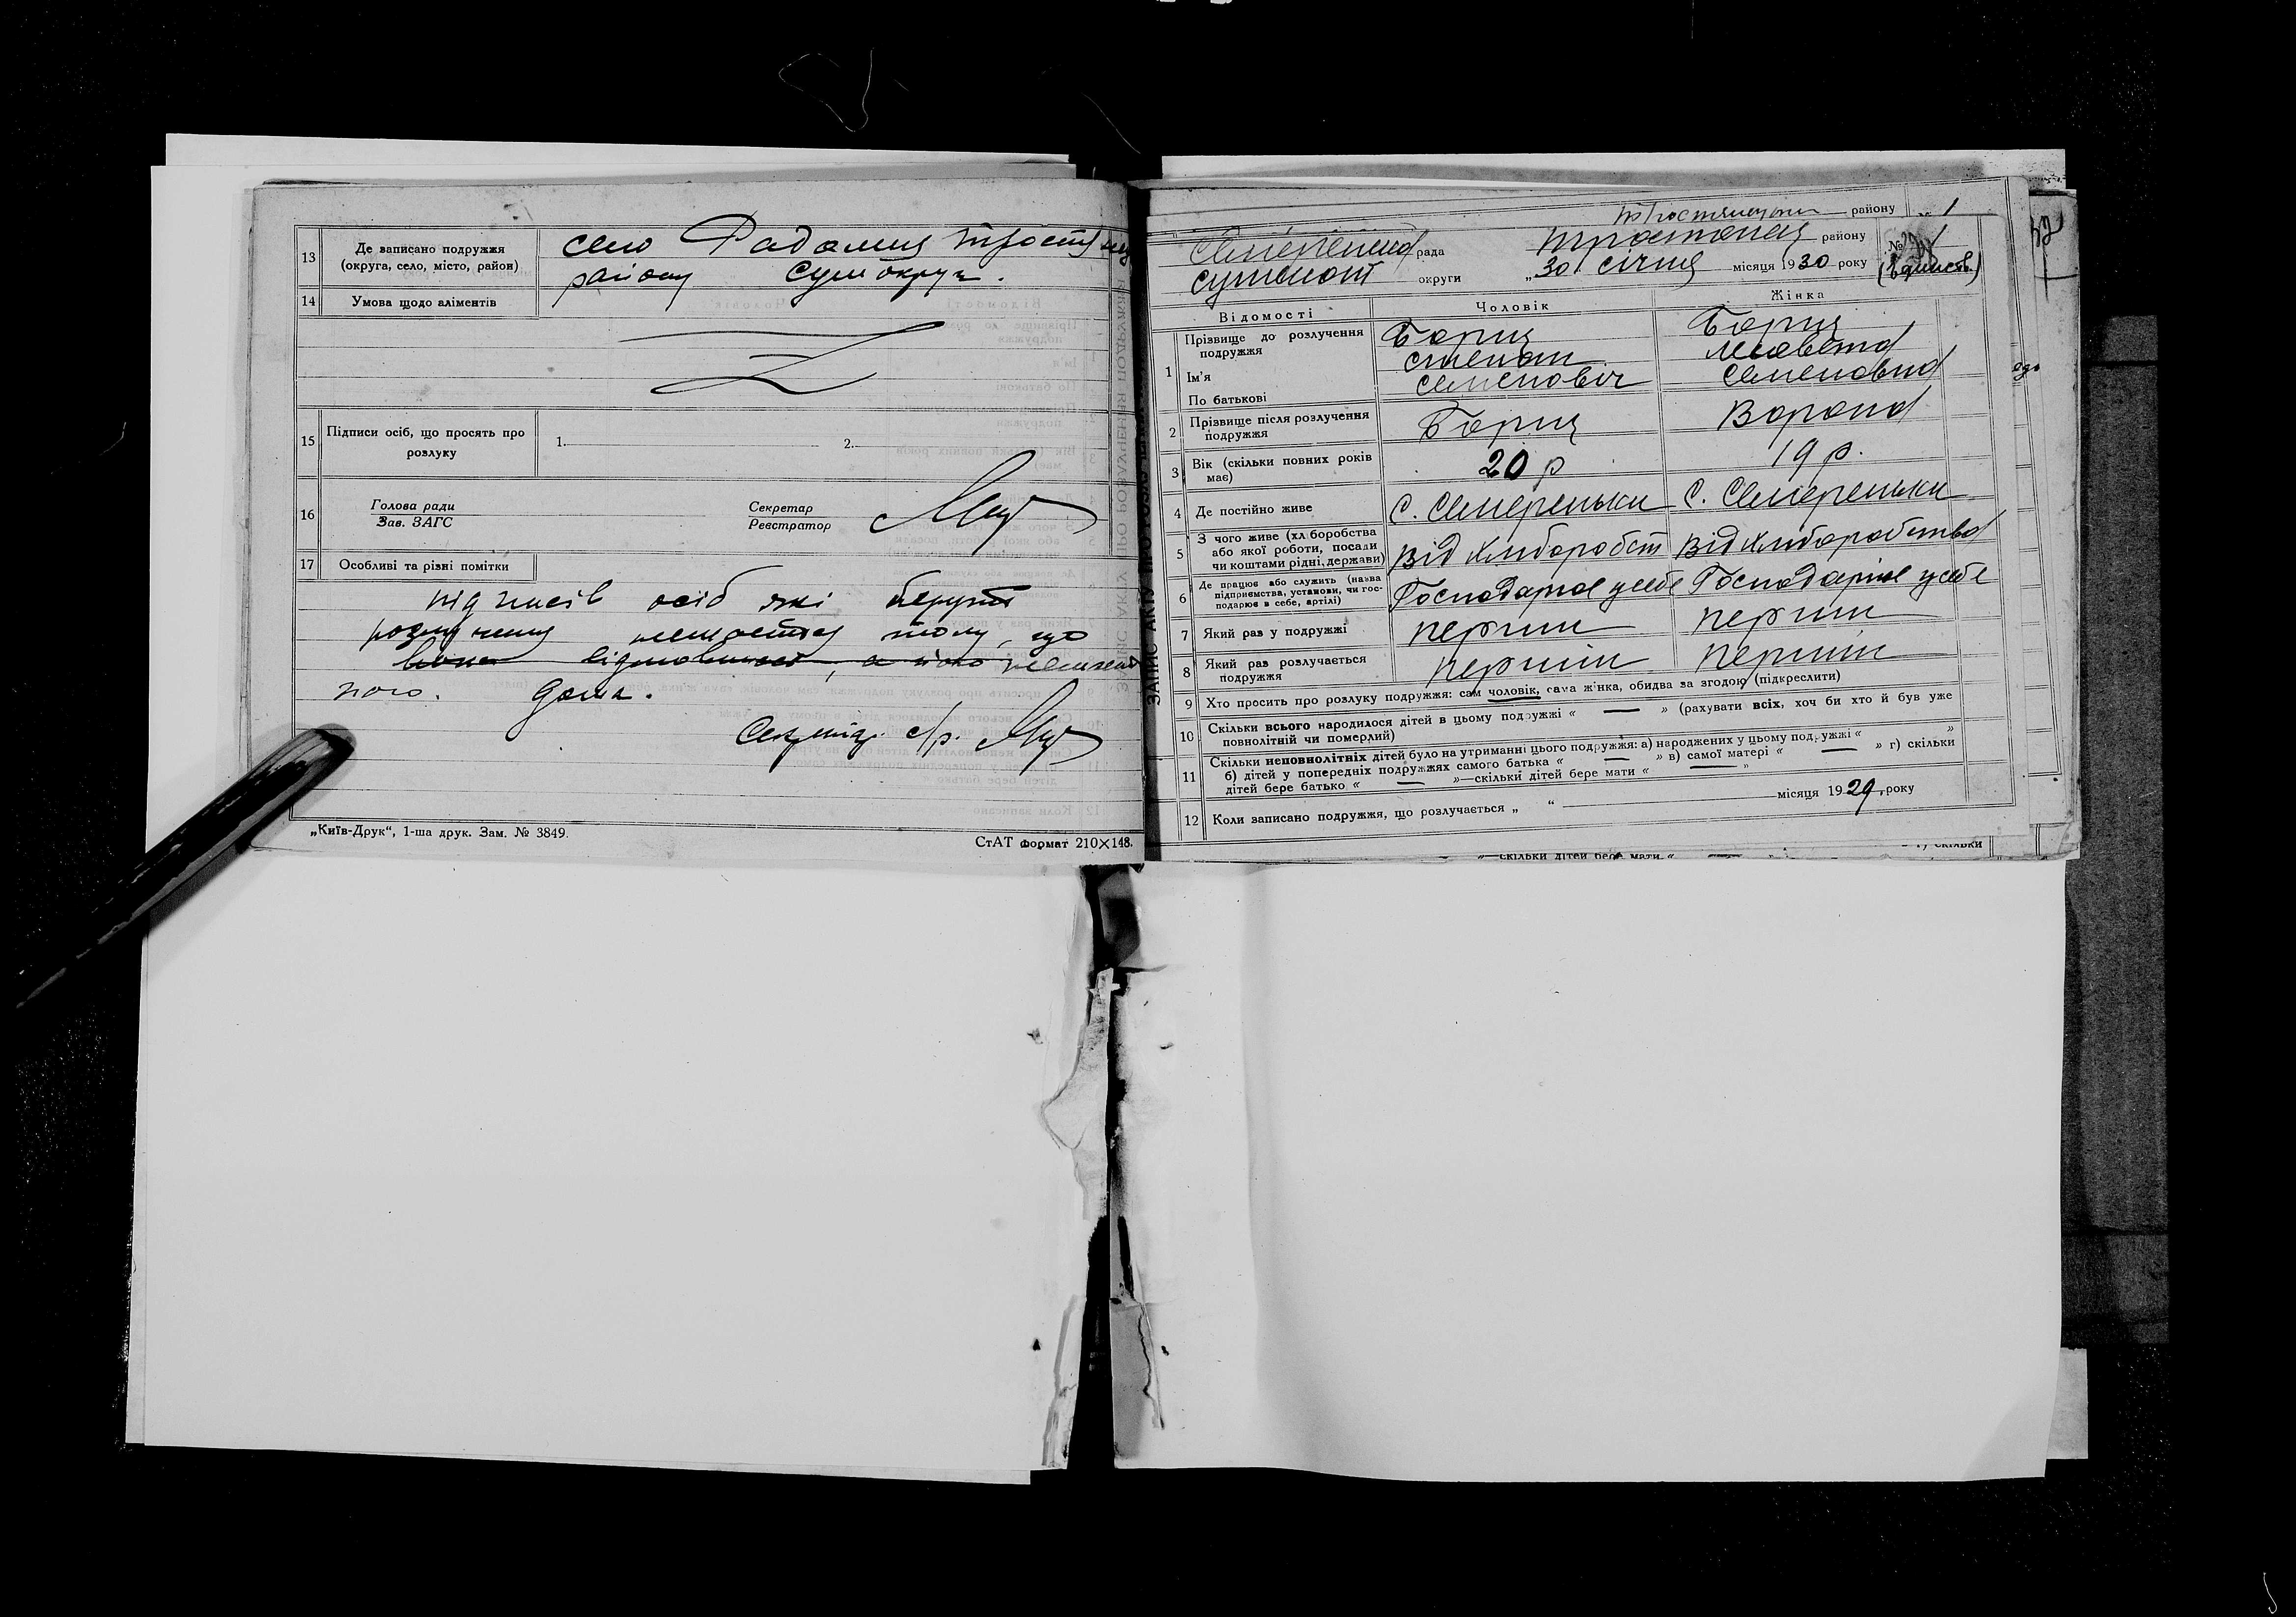 13 Де записано подружжя
(округа, село, місто, район)
село Радомля Тростянец
району Сум округи.
14 Умова щодо аліментів
15 Підписи осіб, що просять про
розлуку
1. 2.
16 Голова ради
Зав. ЗАГС
Секретар
Реєстратор
17 Особливі та різні помітки
підписів осіб які беруть
розлучення немаеться тому, що
вона відмовилась, а його немає
дома.
Секрет с/р.
„Київ-Друк“, 1-ша друк. Зам. № 3849.
СтАТ формат 210×148.
району 1
рада району №
округи „30“ січня місяця 1930 року
Відомості Чоловік Жінка
1 Прізвище до розлучення
подружжя
Ім'я
По батькові
Бориц Бориц
Степан
Семеновіч Семеновна
2 Прізвище після розлучення
подружжя
Бориц Ворона
3 Вік (скільки повних років
має)
20 р 19 р.
4 Де постійно живе
С. Семереньки С. Семереньки
5 З чого живе (хліборобства
або якої роботи, посади
чи коштами рідні, держави)
Від хліборобст Від хліборобства
6 Де працює або служить (назва
підприємства, установи, чи гос-
подарює в себе, артілі)
Господарює у себе Господарює у себе
7 Який раз у подружжі
перший перший
8 Який раз розлучається
подружжя
перший перший
9 Хто просить про розлуку подружжя: сам чоловік, сама жінка, обидва за згодою (підкреслити)
10 Скільки всього народилося дітей в цьому подружжі « — » (рахувати всіх, хоч би хто й був уже
повнолітній чи померлий)
11 Скільки неповнолітніх дітей було на утриманні цього подружжя: а) народжених у цьому подружжі « »
б) дітей у попередніх подружжях самого батька « — » в) самої матері « — » г) скільки
дітей бере батько « — »—скільки дітей бере мати « — »
12 Коли записано подружжя, що розлучається „ “ місяця 1929 року
„—скільки дітей бере мати „